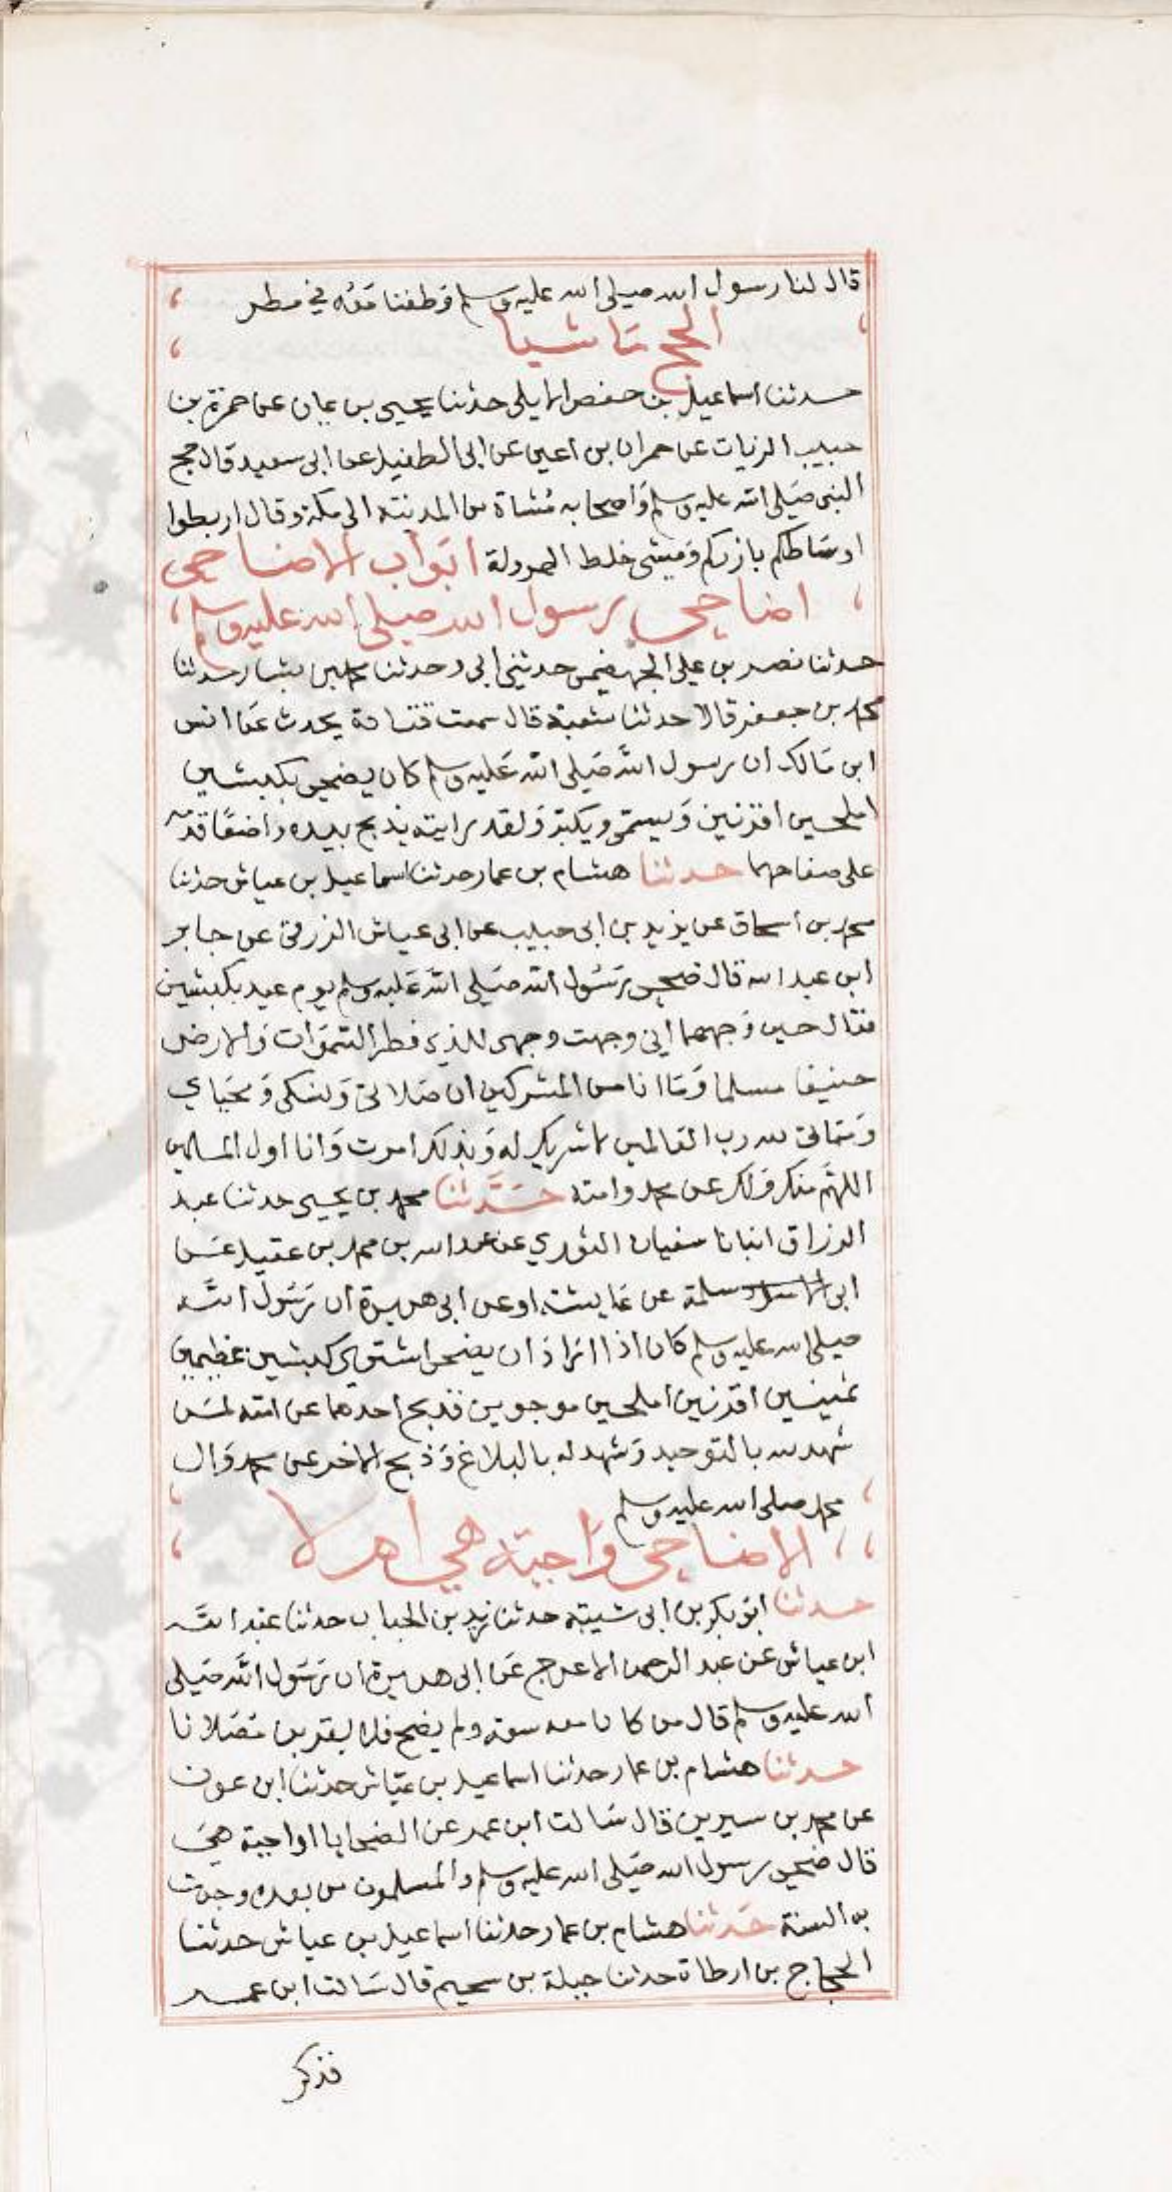 قال لنا رسول الله صلى الله عليه وسلم وطفنا معه في مطر
الحج ماشيا
حدثنا اسماعيل بن حفص الايلى حدثنا يحيى بن يمان عن حمزة بن
حبيب الزيات عن حمران بن اعين عن ابى الطفيل عن ابى سعيد قال حج
النبى صلى الله عليه وسلم واصحابه مشاة من المدينة الى مكة وقال اربطوا
اوساطكم بازركم ومشى خلط الهرولة ابواب الاضاحى
اضاحى رسول الله صلى الله عليه وسلم
حدثنا نصر بن على الجهضمى حدثنى ابى وحدثنا محمد بن بشار حدثنا
محمد بن جعفر قالا حدثنا شعبة قال سمعت قتادة يحدث عن انس
ابن مالك ان رسول الله صلى الله عليه وسلم كان يضحى بكبشين
املحين اقرنين ويسمى ويكبر ولقد رايته يذبح بيده واضعا قدمه
على صفاحهما حدثنا هشام بن عمار حدثنا اسماعيل بن عياش حدثنا
محمد بن اسحاق عن يزيد بن ابى حبيب عن ابى عياش الزرقى عن جابر
ابن عبد الله قال ضحى رسول الله صلى الله عليه وسلم يوم عيد بكبشين
فقال حين وجههما انى وجهت وجهى للذى فطر السموات والارض
حنيفا مسلما وما انا من المشركين ان صلاتى ونسكى ومحياي
ومماتى لله رب العالمين لا شريك له وبذلك امرت وانا اول المسلمين
اللهم منك ولك عن محمد وامته حدثنا محمد بن يحيى حدثنا عبد
الرزاق انبانا سفيان الثوري عن عبد الله بن محمد بن عقيل عن
ابى سلمة عن عايشة او عن ابى هريرة ان رسول الله
صلى الله عليه وسلم كان اذا اراد ان يضحى اشترى كبشين عظيمين
ثمينين اقرنين املحين موجوين فذبح احدهما عن امته لمن
شهد لله بالتوحيد وشهد له بالبلاغ وذبح الاخر عن محمد وال
محمد صلى الله عليه وسلم
الاضاحى واجبة هي ام لا
حدثنا ابو بكر بن ابى شيبة حدثنا زيد بن الحباب حدثنا عبد الله
ابن عياش عن عبد الرحمن الاعرج عن ابى هريرة ان رسول الله صلى
الله عليه وسلم قال من كان معه سعة ولم يضح فلا يقربن مصلانا
حدثنا هشام بن عمار حدثنا اسماعيل بن عياش حدثنا ابن عون
عن محمد بن سيرين قال سالت ابن عمر عن الضحايا اواجبة هي
قال ضحى رسول الله صلى الله عليه وسلم والمسلمون من بعده وجرت
به السنة حدثنا هشام بن عمار حدثنا اسماعيل بن عياش حدثنا
الحجاج بن ارطاة حدثنا جبلة بن سحيم قال سالت ابن عمر
فذكر